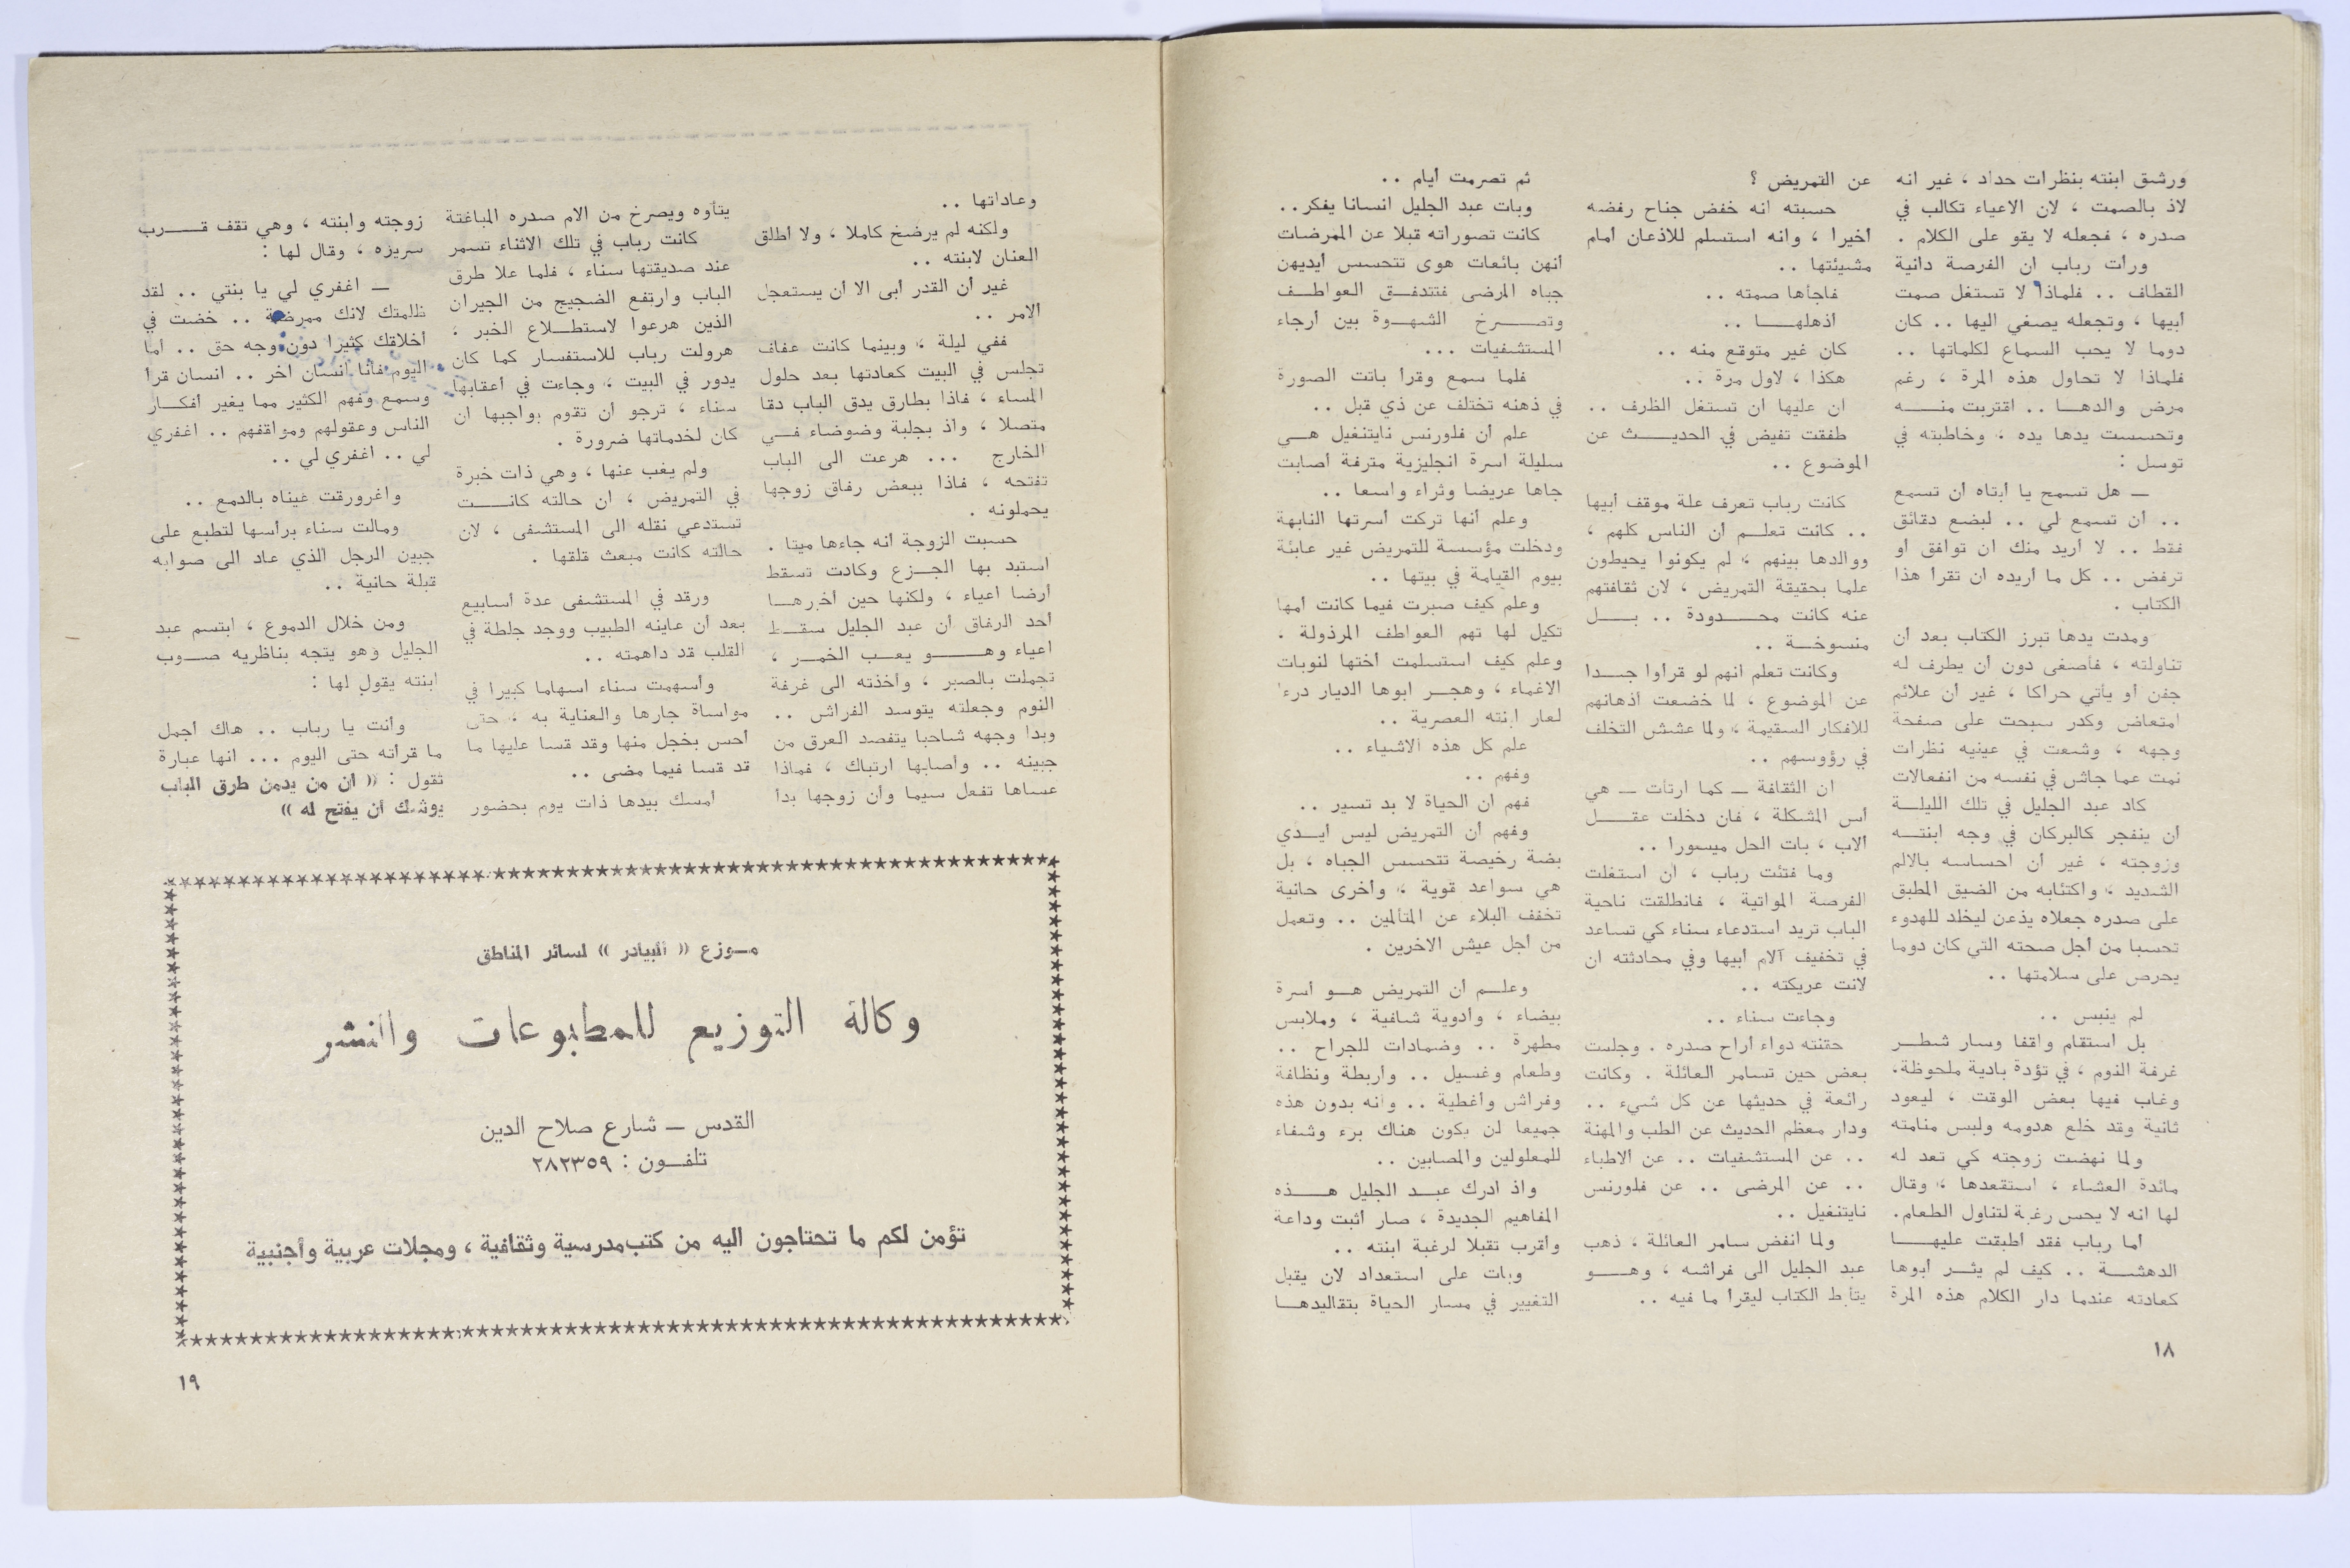 ورشق ابنته بنظرات حداد ، غير انه
لاذ بالصمت ، لان الاعياء تكالب في
صدره ، فجعله لا يقو على الكلام .
ورأت رباب ان الفرصة دانية
القطاف .. فلماذا لا تستغل صمت
أبيها ، وتجعله يصغي اليها .. كان
دوما لا يحب السماع لكلماتها ..
فلماذا لا تحاول هذه المرة ، رغم
مرض والدهـا .. اقتربت منـــه
وتحسست يدها يده ، وخاطبته في
توسل :
ــ هل تسمح يا أبتاه أن تسمع
.. أن تسمع لي .. لبضع دقائق
فقط .. لا أريد منك ان توافق او
ترفض .. كل ما أريده ان تقرأ هذا
الكتاب .
ومدت يدها تبرز الكتاب بعد ان
تناولته ، فأصغى دون أن يطرف له
جفن أو يأتي حراكا ، غير ان علائم
امتعاض وكدر سبحت على صفحة
وجهه ، وشعت في عينيه نظرات
نمت عما جاش في نفسه من انفعالات
كاد عبد الجليل في تلك الليلــة
أن ينفجر كالبركان في وجه ابنتــه
وزوجته ، غير ان احساسه بالالم
الشديد ، واكتئابه من الضيق المطبق
على صدره جعلاه يذعن ليخلد للهدوء
تحسبا من أجل صحته التي كان دوما
يحرص على سلامتها ..
لم ينبس ..
بل استقام واقفا وسار شطــر
غرفة النوم ، في تؤدة بادية ملحوظة.
وغاب فيها بعض الوقت ، ليعود
ثانية وقد خلع هدومه ولبس منامته
ولما نهضت زوجته كي تعد له
مائدة العشاء ، استقعدها ، وقال
لها انه لا يحس رغبة لتناول الطعام.
أما رباب فقد اطبقت عليهـــا
الدهشــة .. كيف لم يثــر أبوها
كعادته عندما دار الكلام هذه المرة
عن التمريض ؟
حسبته انه خفض جناح رفضه
أخيرا ، وانه استسلم للاذعان أمام
مشيئتها ..
فاجأها صمته ..
أذهلهــا ..
كان غير متوقع منه ..
هكذا ، لاول مرة ..
ان عليها ان تستغل الظرف ..
طفقت تفيض في الحديـــث عن
الموضوع ..
كانت رباب تعرف علة موقف أبيها
.. كانت تعلــم أن الناس كلهم ،
ووالدها بينهم ، لم يكونوا يحيطون
علما بحقيقة التمريض ، لان ثقافتهم
عنه كانت محـــدودة .. بـــل
منسوخــة ..
وكانت تعلم انهم لو قرأوا جــدا
عن الموضوع ، لما خضعت أذهانهم
للافكار السقيمة ، ولما عشش التخلف
في رؤوسهم ..
ان الثقافة ــ كما ارتأت ــ هي
أس المشكلة ، فان دخلت عقـــل
الاب ، بات الحل ميسورا ..
وما فتئت رباب ، ان استغلت
الفرصة المواتية ، فانطلقت ناحية
الباب تريد استدعاء سناء كي تساعد
في تخفيف آلام أبيها وفي محادثته ان
لانت عريكته ..
وجاءت سناء ..
حقنته دواء أراح صدره . وجلست
بعض حين تسامر العائلة . وكانت
رائعة في حديثها عن كل شيء ..
ودار معظم الحديث عن الطب والمهنة
.. عن المستشفيات .. عن الاطباء
.. عن المرضى .. عن فلورنس
نايتنغيل ..
ولما انفض سامر العائلة ، ذهب
عبد الجليل الى فراشه ، وهــو
يتأبط الكتاب ليقرأ ما فيه ..
ثم تصرمت أيام ..
وبات عبد الجليل انسانا يفكر..
كانت تصوراته قبلا عن الممرضات
أنهن بائعات هوى تتحسس أيديهن
جباه المرضى فتتدفــق العواطــف
وتصـــرخ الشهــوة بين أرجاء
المستشفيات ...
فلما سمع وقرأ باتت الصورة
في ذهنه تختلف عن ذي قبل ..
علم أن فلورنس نايتنغيل هــي
سليلة اسرة انجليزية مترفة أصابت
جاها عريضا وثراء واسعا ..
وعلم أنها تركت أسرتها النابهة
ودخلت مؤسسة للتمريض غير عابئة
بيوم القيامة في بيتها ..
وعلم كيف صبرت فيما كانت أمها
تكيل لها تهم العواطف المرذولة .
وعلم كيف استسلمت أختها لنوبات
الاغماء ، وهجــر ابوها الديار درءا
لعار ابنته العصرية ..
علم كل هذه الاشياء ..
وفهم ..
فهم ان الحياة لا بد تسير ..
وفهم أن التمريض ليس أيــدي
بضة رخيصة تتحسس الجباه ، بل
هي سواعد قوية ، وأخرى حانية
تخفف البلاء عن المتألمين .. وتعمل
من أجل عيش الاخرين .
وعلــم أن التمريض هــو أسرة
بيضاء ، وأدوية شافية ، وملابس
مطهرة .. وضمادات للجراح ..
وطعام وغسيل .. وأربطة ونظافة
وفراش وأغطية .. وأنه بدون هذه
جميعا لن يكون هناك برء وشفاء
للمعلولين والمصابين ..
واذ أدرك عبــد الجليل هـــذه
المفاهيم الجديدة ، صار أثبت وداعة
وأقرب تقبلا لرغبة ابنته ..
وبات على استعداد لان يقبل
التغيير في مسار الحياة بتقاليدهــا
١٨
وعاداتها ..
ولكنه لم يرضخ كاملا ، ولا أطلق
العنان لابنته ..
غير أن القدر أبى الا أن يستعجل
الامر ..
ففي ليلة ، وبينما كانت عفاف
تجلس في البيت كعادتها بعد حلول
المساء ، فاذا بطارق يدق الباب دقا
متصلا ، واذ بجلبة وضوضاء فــي
الخارج ... هرعت الى الباب
تفتحه ، فاذا ببعض رفاق زوجها
يحملونه .
حسبت الزوجة انه جاءها ميتا .
استبد بها الجــزع وكادت تسقط
أرضا اعياء ، ولكنها حين أخبرهــا
أحد الرفاق أن عبد الجليل سقــط
اعياء وهـــو يعــب الخمــر ،
تجملت بالصبر ، وأخذته الى غرفة
النوم وجعلته يتوسد الفراش ..
وبدا وجهه شاحبا يتفصد العرق من
جبينه .. وأصابها ارتباك ، فماذا
عساها تفعل سيما وأن زوجها بدأ
يتأوه ويصرخ من الام صدره المباغتة
كانت رباب في تلك الاثناء تسمر
عند صديقتها سناء ، فلما علا طرق
الباب وارتفع الضجيج من الجيران
الذين هرعوا لاستطــلاع الخبر ،
هرولت رباب للاستفسار كما كان
يدور في البيت ، وجاءت في أعقابها
سناء ، ترجو ان تقوم بواجبها ان
كان لخدماتها ضرورة .
ولم يغب عنها ، وهي ذات خبرة
في التمريض ، ان حالته كانـــت
تستدعي نقله الى المستشفى ، لان
حالته كانت مبعث قلقها .
ورقد في المستشفى عدة أسابيع
بعد أن عاينه الطبيب ووجد جلطة في
القلب قد داهمته ..
وأسهمت سناء اسهاما كبيرا في
مواساة جارها والعناية به ، حتى
أحس بخجل منها وقد قسا عليها ما
قد قسا فيما مضى ..
أمسك بيدها ذات يوم بحضور
زوجته وابنته ، وهي تقف قـــرب
سريره ، وقال لها :
ــ اغفري لي يا بنتي .. لقد
ظلمتك لانك ممرضة .. خضت في
أخلاقك كثيرا دون وجه حق .. أما
اليوم فأنا انسان آخر .. انسان قرأ
وسمع وفهم الكثير مما يغير أفكــار
الناس وعقولهم ومواقفهم .. اغفري
لي .. اغفري لي ..
واغرورقت عيناه بالدمع ..
ومالت سناء برأسها لتطبع على
جبين الرجل الذي عاد الى صوابه
قبلة حانية ..
ومن خلال الدموع ، ابتسم عبد
الجليل وهو يتجه بناظريه صــوب
ابنته يقول لها :
وأنت يا رباب .. هاك أجمل
ما قرأته حتى اليوم ... انها عبارة
تقول : « ان من يدمن طرق الباب
يوشك أن يفتح له »
مــوزع « البيادر » لسائر المناطق
وكالة التوزيع للمطبوعات والنشر
القدس ــ شارع صلاح الدين
تلفــون : ٢٨٢٣٥٩
تؤمن لكم ما تحتاجون اليه من كتب مدرسية وثقافية ، ومجلات عربية وأجنبية
١٩